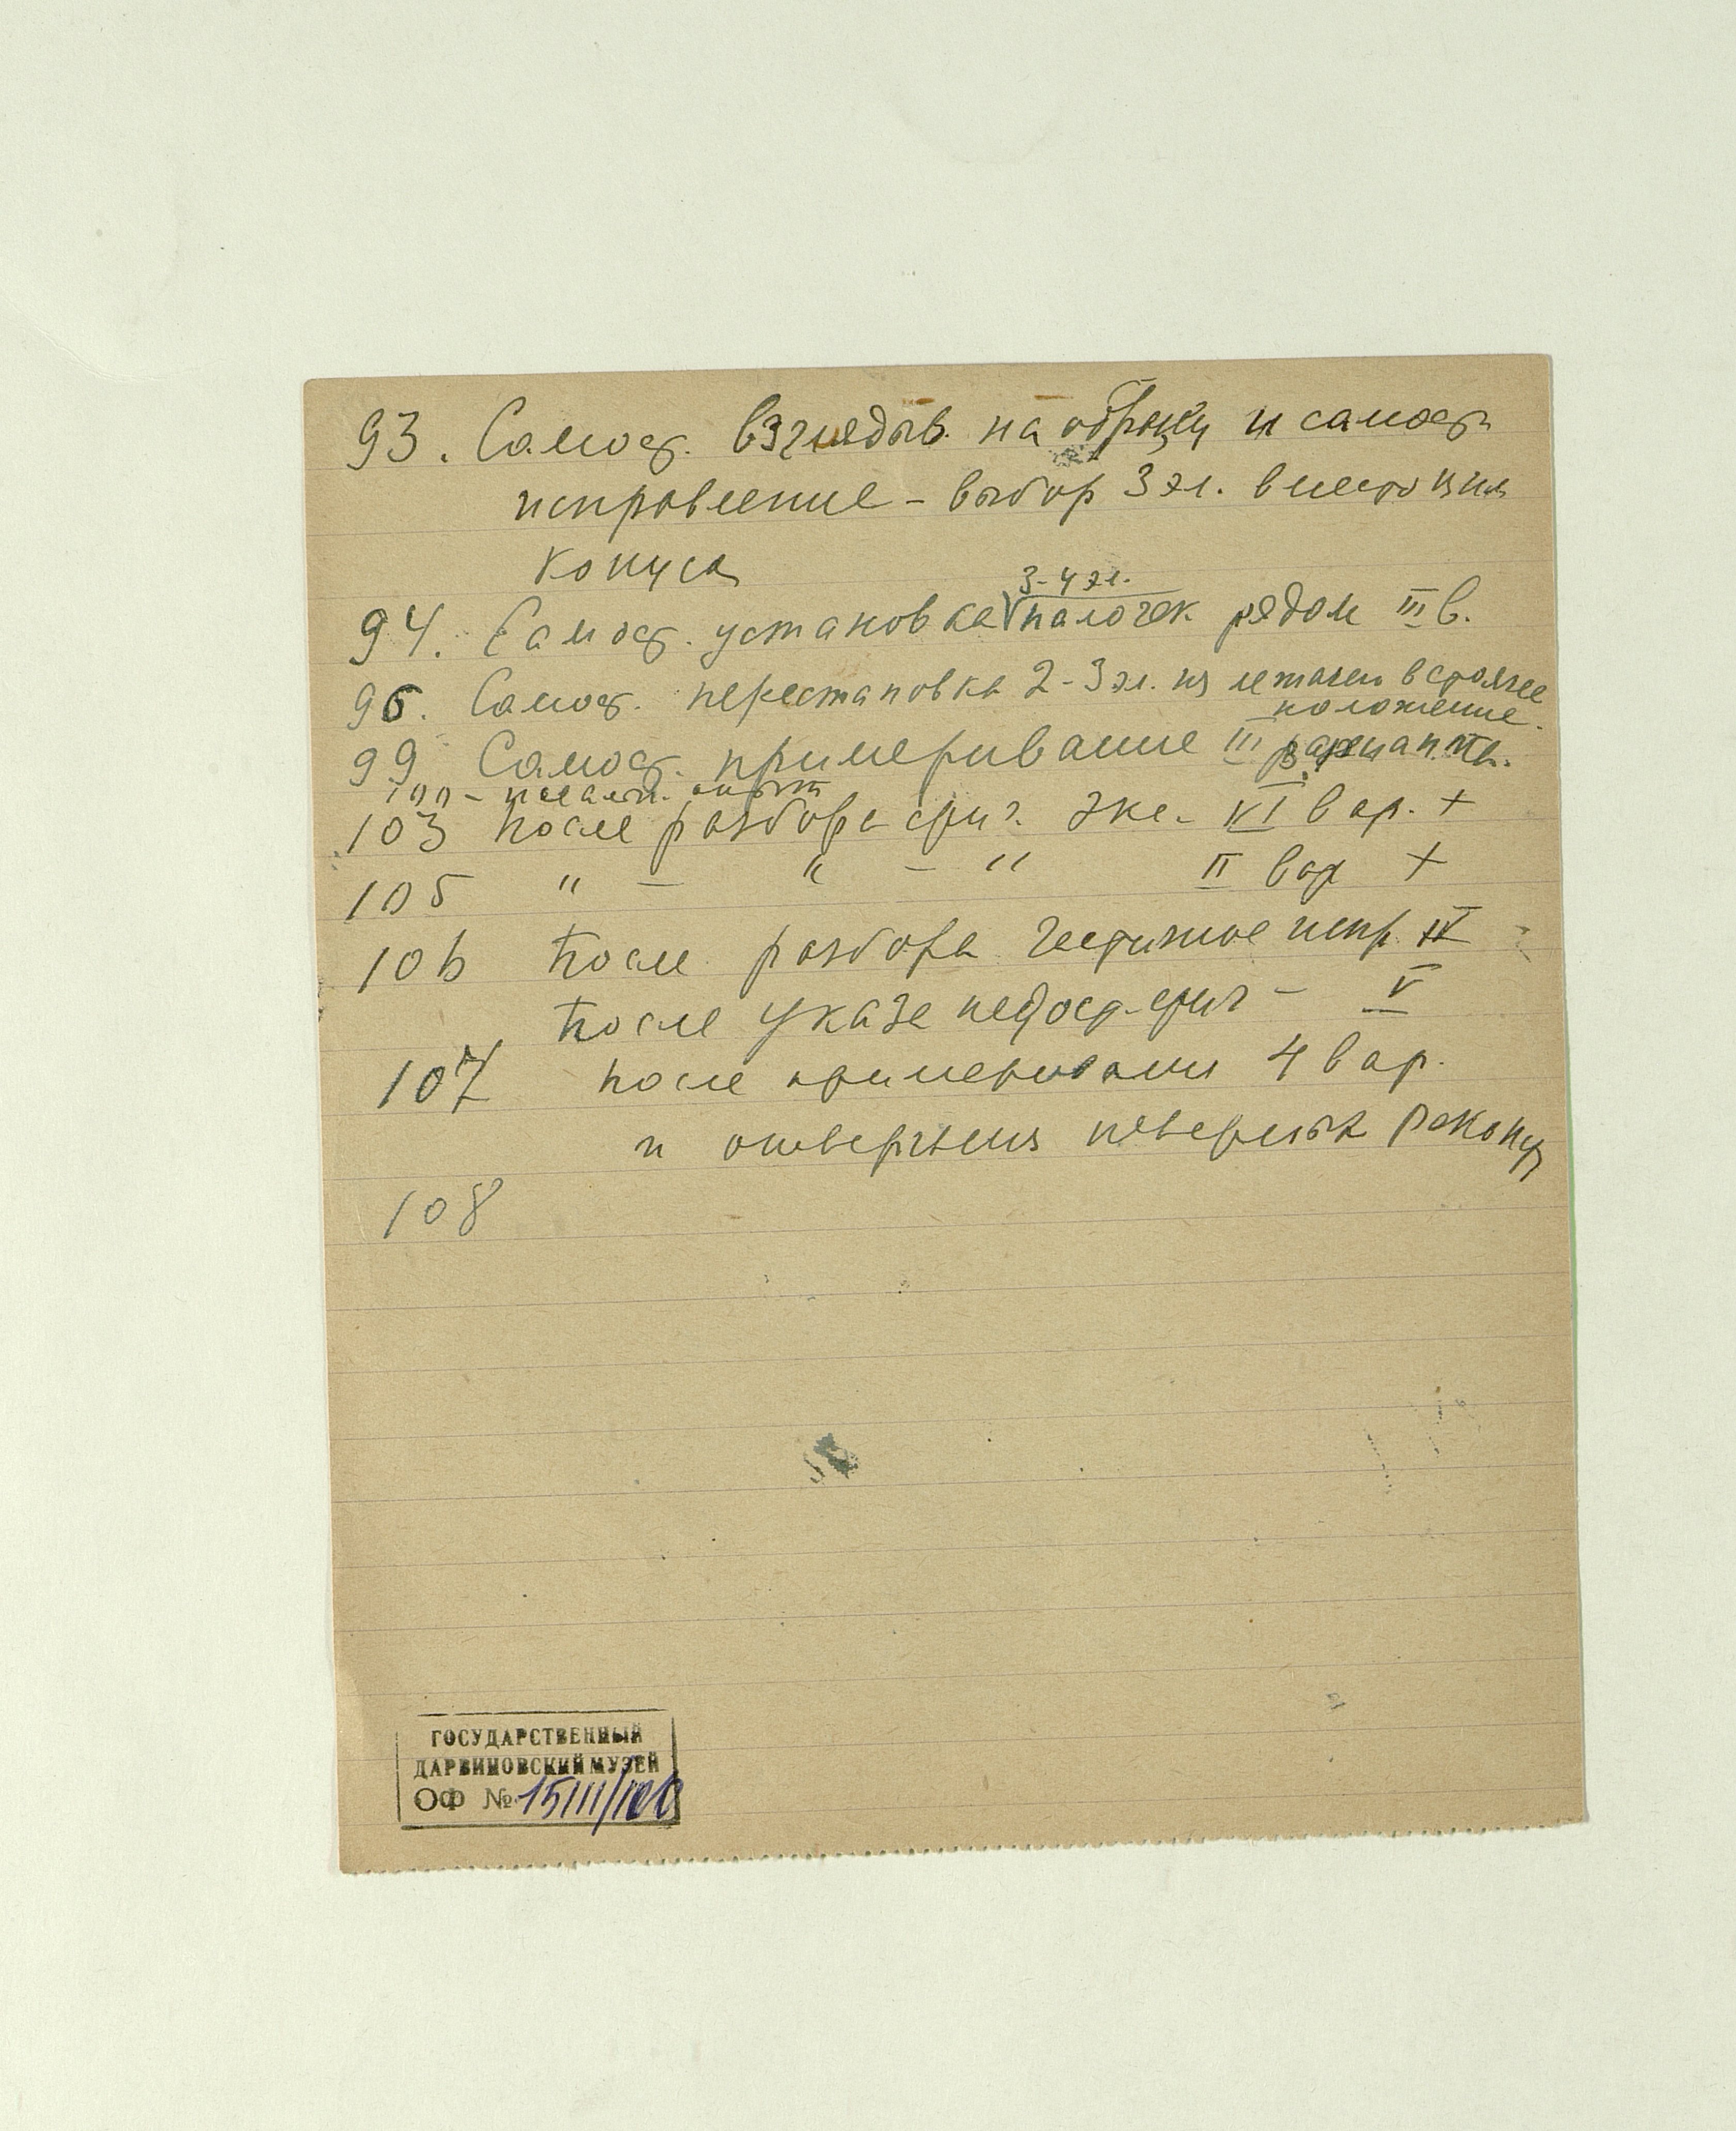 93. Самост. взглядыв. на образец и самост.
исправление – выбор 3 эл. вместо цил
конуса
3-4 эл.
94. Самост. установка палочек рядом III в.
95. Самост. перестановка 2-3 эл. из лежачего в стоячее
положение.
99 Самост. примеривание III варианта.
100 –
103 После разбора ориг. экс. VI вар. +
105 " – " – " II вар +
106 После разбора частичное испр. IV
После указ. недост. ориг – V
107 после примеривания 4 вар.
и отвержения неверных
108
ГОСУДАРСТВЕННЫЙ
ДАРВИНОВСКИЙ МУЗЕЙ
ОФ №